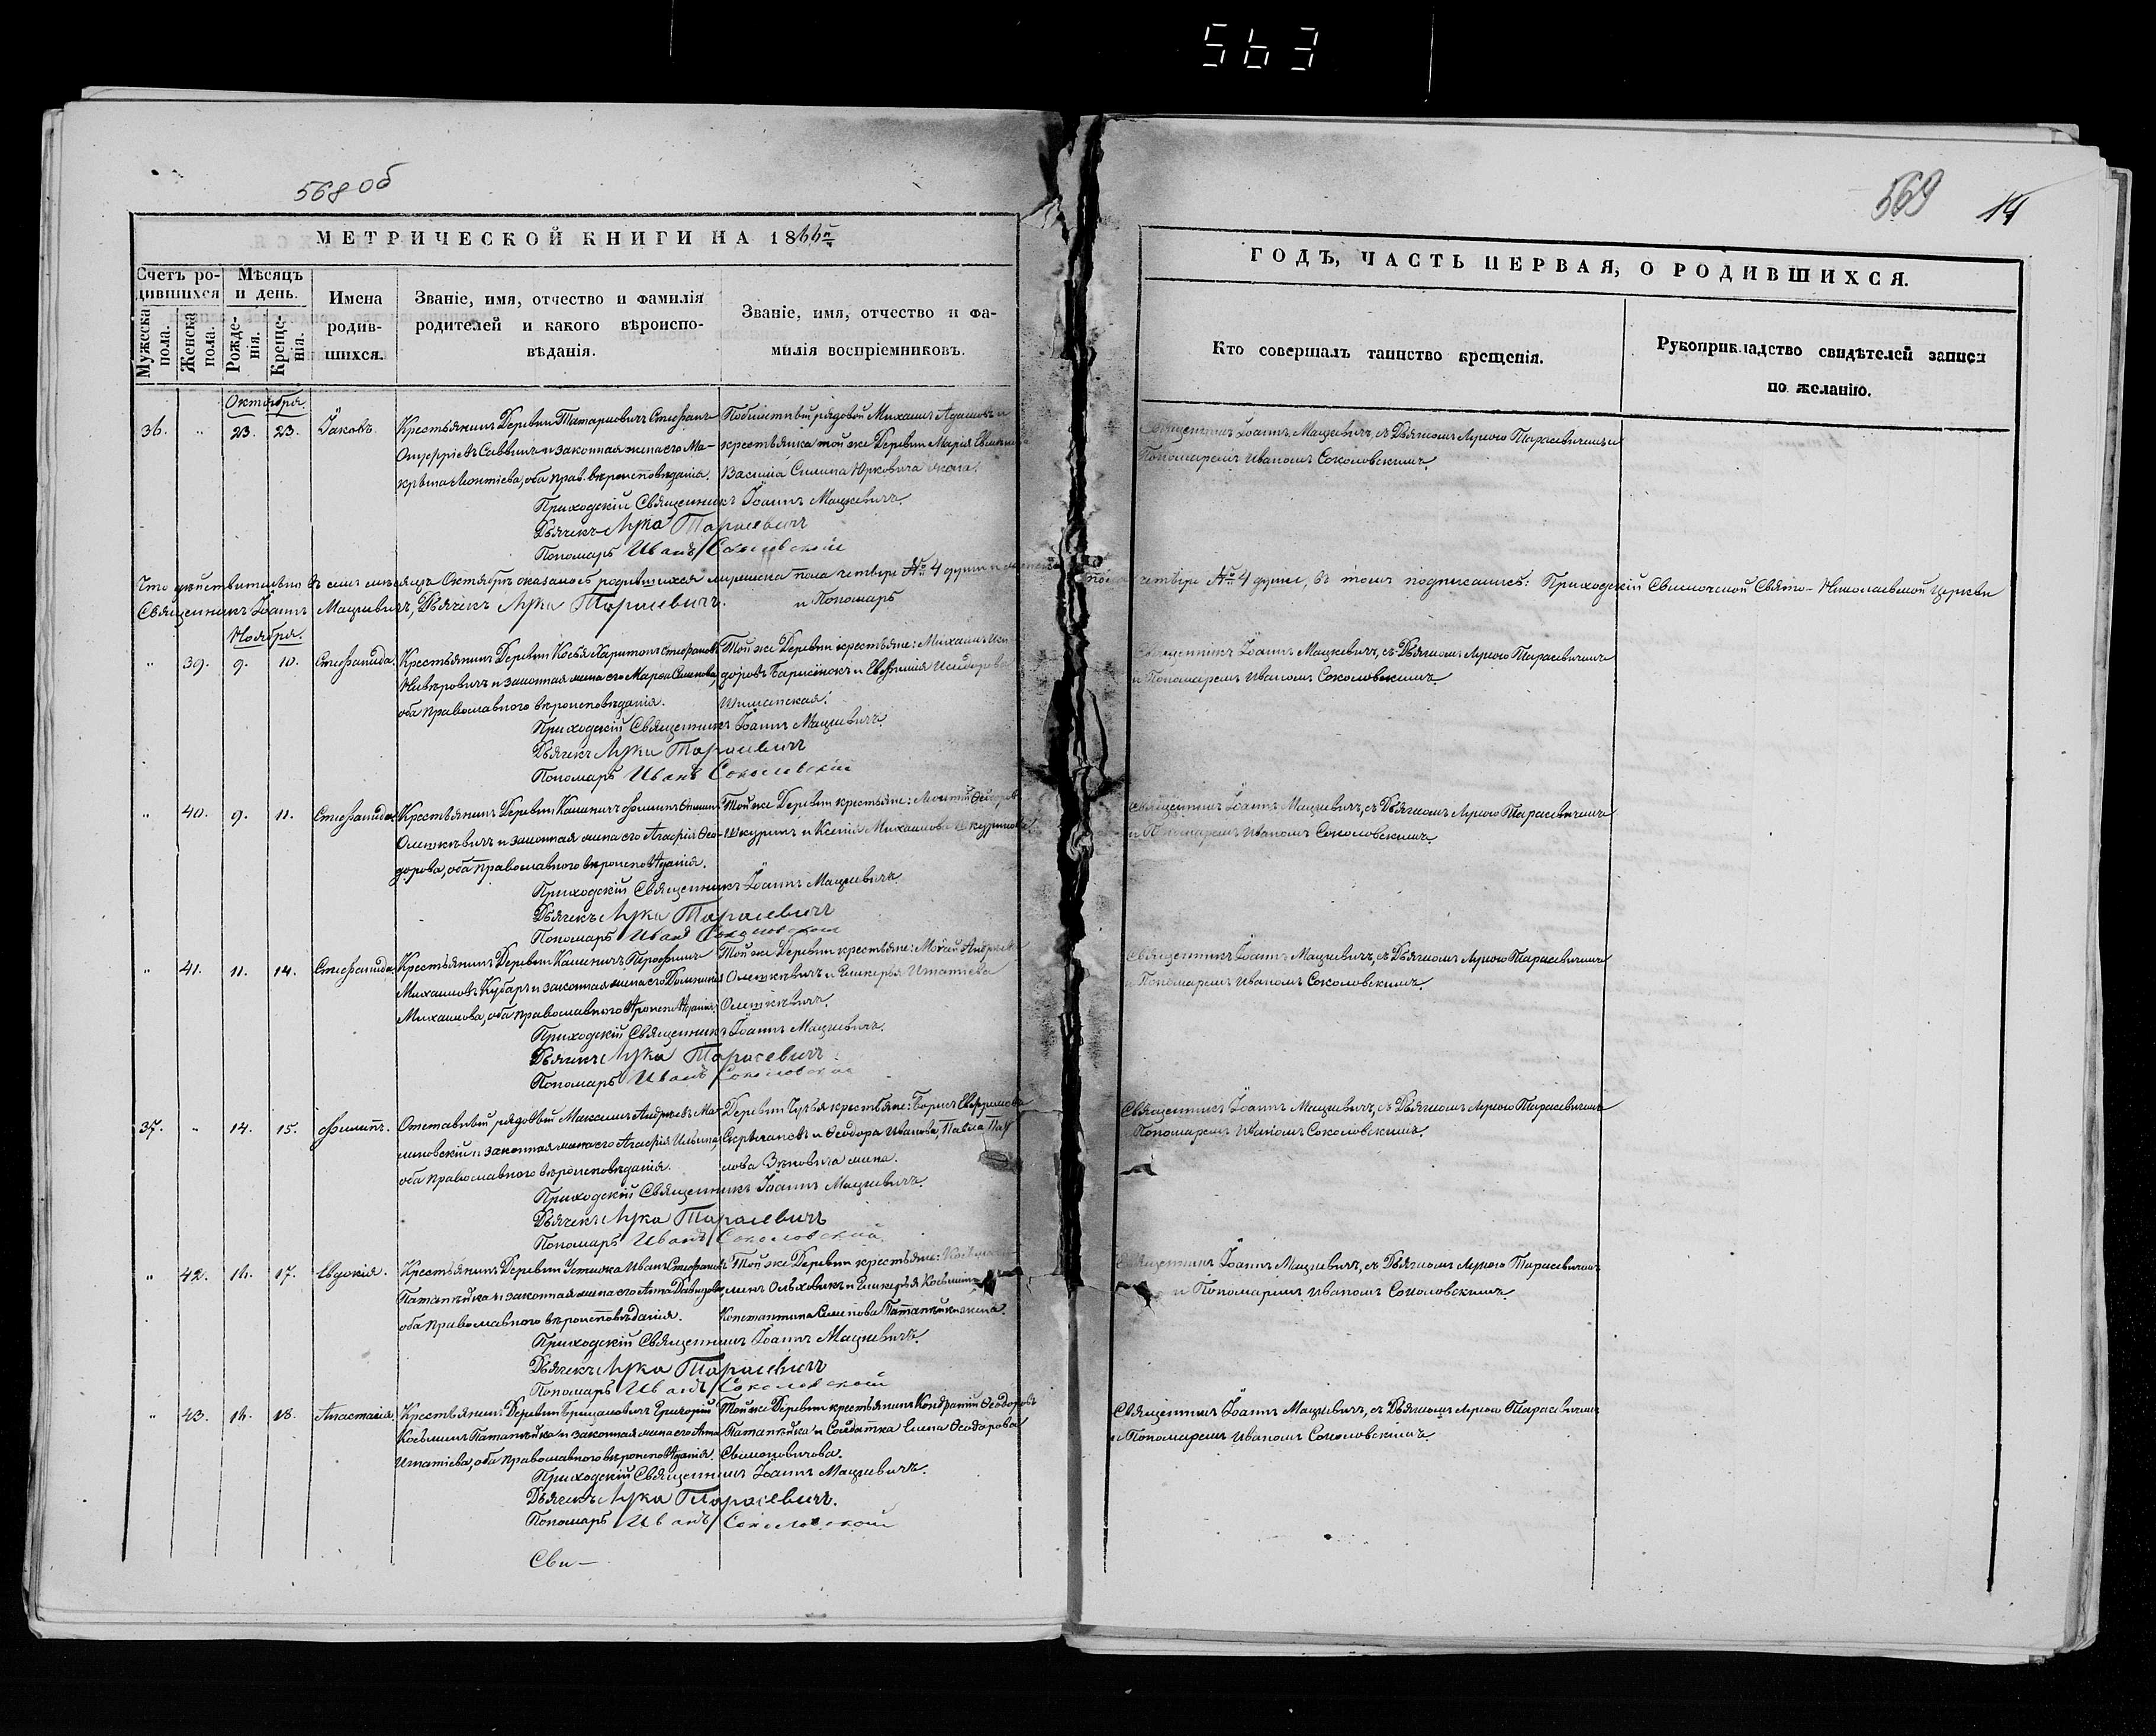 563
568 об
569 14
МЕТРИЧЕСКОЙ КНИГИ НА 1866й
ГОДЪ, ЧАСТЬ ПЕРВАЯ, О РОДИВШИХСЯ.
Счетъ ро-
дившихся
Мужеска пола.
Женска пола.
Мѣсяцъ
и день.
Рожде-
нія.
Креще-
нія.
Имена
родив-
шихся.
Званіе, имя, отчество и фамилія
родителей и какого вѣроиспо-
вѣданія.
Званіе, имя, отчество и фа-
милія воспріемниковъ.
Кто совершалъ таинство крещенія.
Рукоприкладство свидѣтелей записи
по желанію.
Октября.
36. " 23. 23. Іаковъ.
Крестьянинъ Деревни Татариовичъ Стефанъ
Онуфріевъ Саввичъ и законная жена его Ма-
оба прав. вѣроисповѣданія.
рядовой Михаилъ Адамовъ и
крестьянка той же Деревни Марія
Юрковича жена.
Священникъ Іоаннъ Мацкевичъ, съ Дьячкомъ Лукою Тарасевичемъ и
Пономаремъ Иваномъ Соколовскимъ.
Приходскій Священникъ Іоаннъ Мацкевичъ.
Дьячекъ Лука Тарасевичъ
Пономарь Иванъ Соколовскій
Что дѣйствительно въ семъ мѣсяцѣ Октябрѣ оказалось родившихся мужеска пола четыре № 4 души и женска пола четыре № 4 души, въ томъ подписались: Приходскій Свято-Николаевской Церкви
Священникъ Іоаннъ Мацкевичъ, Дьячекъ Лука Тарасевичъ. и Пономарь
Ноября.
" 39. 9. 10. Стефанида.
Крестьянинъ Деревни Косья Харитонъ Стефановъ
и законная жена его Марѳа Семенова,
оба православного вѣроисповѣданія.
Той же Деревни крестьяне: Михаилъ Иси-
доровъ и Евфимія Исидорова
Священникъ Іоаннъ Мацкевичъ, съ Дьячкомъ Лукою Тарасевичемъ
и Пономаремъ Иваномъ Соколовскимъ.
Приходскій Священникъ Іоаннъ Мацкевичъ.
Дьячекъ Лука Тарасевичъ
Пономарь Иванъ Соколовскій
" 40. 9. 11. Стефанида.
Крестьянинъ Деревни Каменичъ
Олешкевичъ и законная жена его Агафія Ѳео-
дорова, оба православного вѣроисповѣданія.
Той же Деревни крестьяне: Ѳеодоровъ
Шкуринъ и Ксенія Михайлова Шкуринова
Священникъ Іоаннъ Мацкевичъ, съ Дьячкомъ Лукою Тарасевичемъ
и Пономаремъ Иваномъ Соколовскимъ.
Приходскій Священникъ Іоаннъ Мацкевичъ.
Дьячекъ Лука Тарасевичъ
Пономарь Иванъ Соколовскій
" 41. 11. 14. Стефанида.
Крестьянинъ Деревни Каменичъ Трофимъ
Михайловъ Кубаръ и законная жена его Домникія
Михайлова, оба православного вѣроисповѣданія.
Той же Деревни крестьяне: Андреевъ
Олешкевичъ и Гликерья Игнатіева
Олешкевичъ.
Священникъ Іоаннъ Мацкевичъ, съ Дьячкомъ Лукою Тарасевичемъ
и Пономаремъ Иваномъ Соколовскимъ.
Приходскій Священникъ Іоаннъ Мацкевичъ.
Дьячекъ Лука Тарасевичъ.
Пономарь Иванъ Соколовскій
37. " 14. 15. Филиппъ.
Отставный рядовой Максимъ Андреевъ Ма-
линовскій и законная жена его Агафія Ильина,
оба православного вѣроисповѣданія.
крестьяне: Борисъ
и Ѳеодора Иванова, Павла Пав-
лова Зѣновича жена.
Священникъ Іоаннъ Мацкевичъ, съ Дьячкомъ Лукою Тарасевичемъ
и Пономаремъ Иваномъ Соколовскимъ.
Приходскій Священникъ Іоаннъ Мацкевичъ.
Дьячекъ Лука Тарасевичъ
Пономарь Иванъ Соколовскій
" 42. 14. 17. Евдокія.
Крестьянинъ Деревни Иванъ Стефановъ
Патапѣйка и законная жена его Анна Давидова,
оба православного вѣроисповѣданія.
Той же Деревни крестьяне:
Ольховикъ и Гликерья Косьмина
Константина Семенова Патапѣйки жена.
Священникъ Іоаннъ Мацкевичъ, съ Дьячкомъ Лукою Тарасевичемъ
и Пономаремъ Иваномъ Соколовскимъ.
Приходскій Священникъ Іоаннъ Мацкевичъ.
Дьячекъ Лука Тарасевичъ
Пономарь Иванъ Соколовскій
" 43. 14. 18. Анастасія.
Крестьянинъ Деревни Бриналовичъ Григорій
Косьминъ Патапѣйка и законная жена его Анна
Игнатіева, оба православного вѣроисповѣданія.
Той же Деревни крестьянинъ Кондратій Ѳеодоровъ
Патапѣйка и Солдатка Елена Ѳеодорова
Священникъ Іоаннъ Мацкевичъ, съ Дьячкомъ Лукою Тарасевичемъ
и Пономаремъ Иваномъ Соколовскимъ.
Приходскій Священникъ Іоаннъ Мацкевичъ.
Дьячекъ Лука Тарасевичъ.
Пономарь Иванъ Соколовскій
Сви-